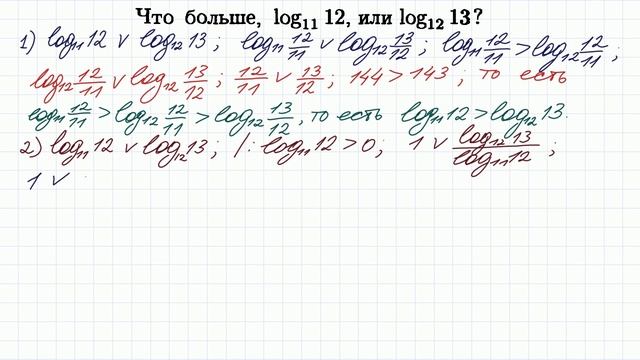 Что больше, log₁₁ 12, или log₁₂ 13?
1) log₁₁12 ∨ log₁₂13 ; log₁₁ 12/11 ∨ log₁₂ 13/12 ; log₁₁ 12/11 > log₁₂ 12/11 ;
log₁₂ 12/11 ∨ log₁₂ 13/12 ; 12/11 ∨ 13/12 ; 144 > 143 ; то есть
log₁₁ 12/11 > log₁₂ 12/11 > log₁₂ 13/12, то есть log₁₁12 > log₁₂13.
2) log₁₁12 ∨ log₁₂13 ; /: log₁₁12 > 0 ; 1 ∨ log₁₂13/log₁₁12 ;
1 ∨